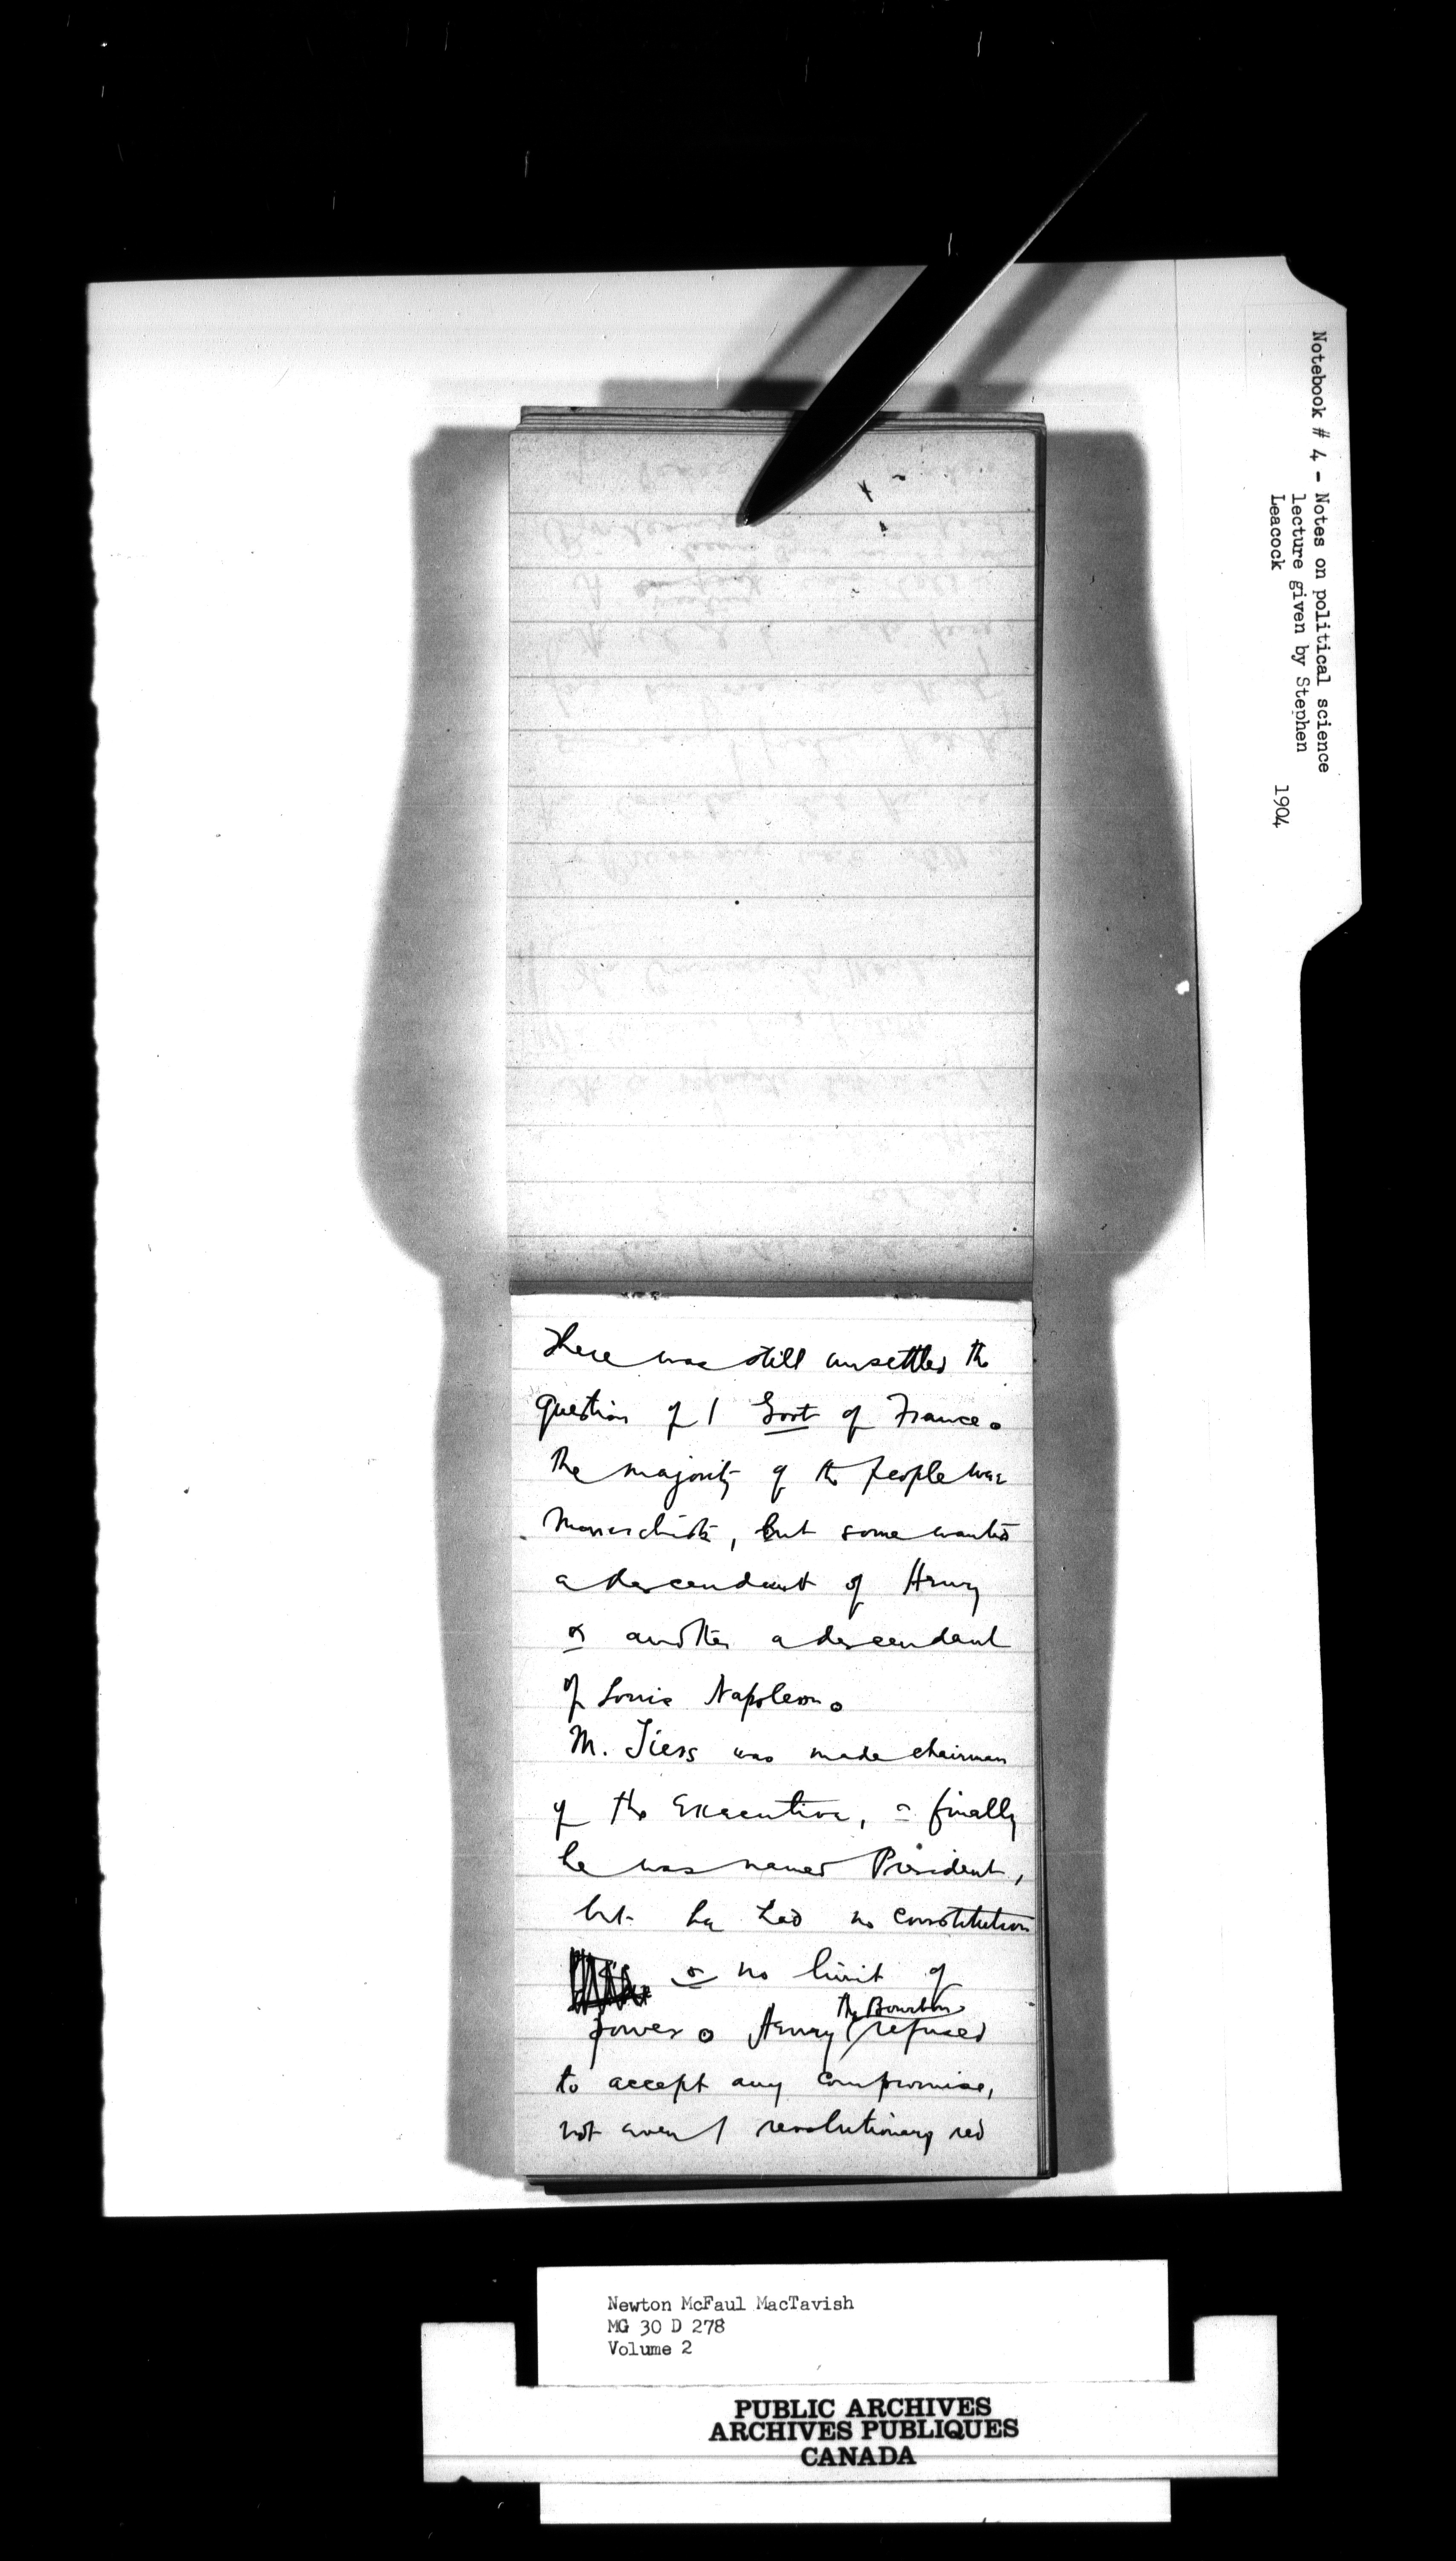 Notebook # 4 - Notes on political science
lecture given by Stephen
Leacock
1904
There was still unsettled the
question of / Govt of France.
The majority of the people was
Monarchists, but some wanted
a descendant of Henry
& another a descendant
of Louis Napoleon.
M. Tiers was made chairman
of the Executive, & finally
he was named President,
but he had no constitution
& no limit of
power. Henry (the Bourbon) refused
to accept any compromise,
not even / revolutionary red
Newton McFaul MacTavish
MG 30 D 278
Volume 2
PUBLIC ARCHIVES
ARCHIVES PUBLIQUES
CANADA